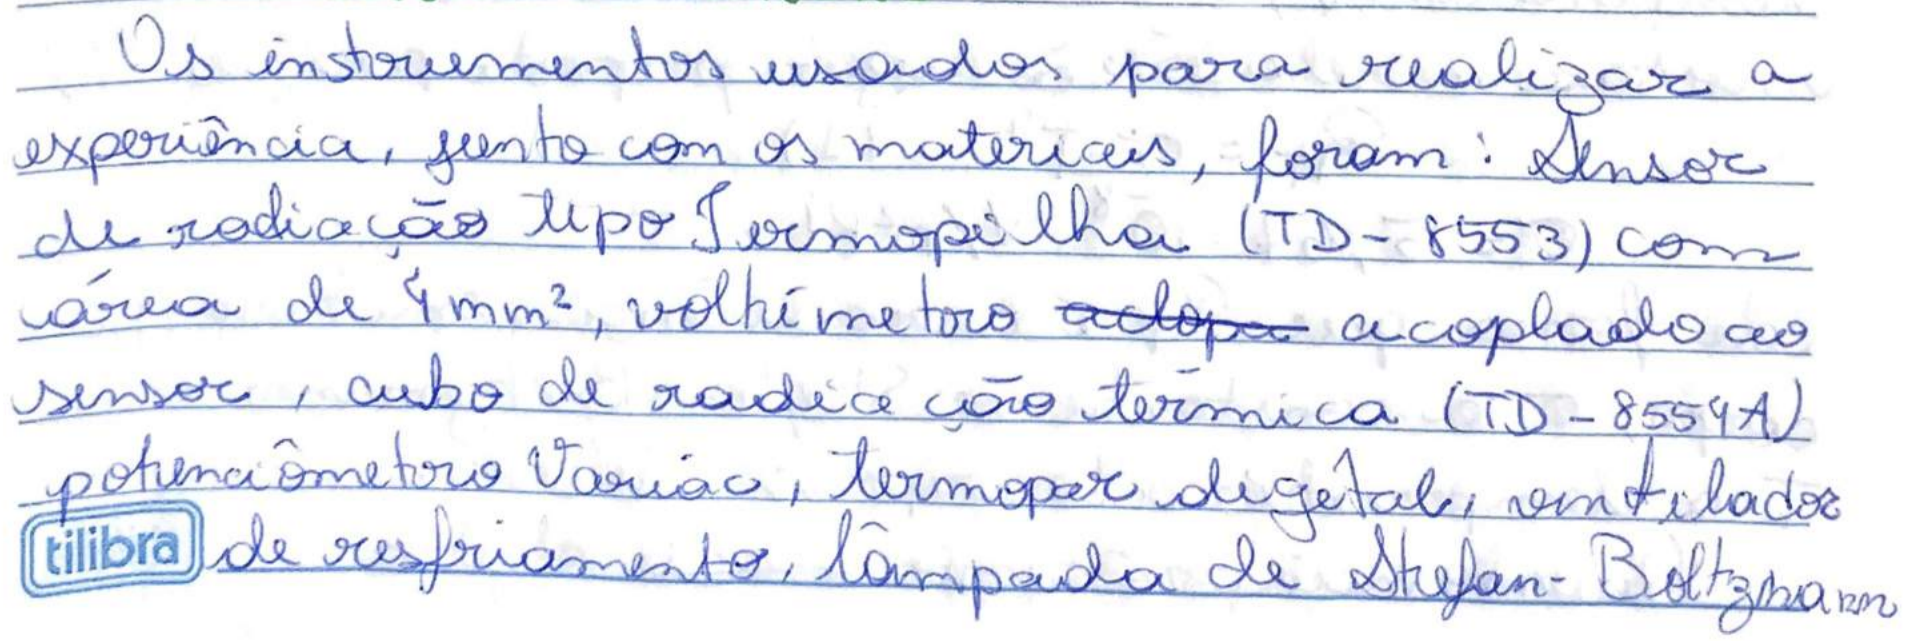 Os instrumentos usados para realizar a
experiência, junto com os materiais, foram: Sensor
de radiação tipo Termopilha (TD-8553) com
área de 4mm², voltímetro aclopa acoplado ao
sensor, cubo de radiação térmica (TD-8554A)
potenciômetro Variác, termopar digital, ventilador
tilibra de resfriamento, lâmpada de Stefan-Boltzmann